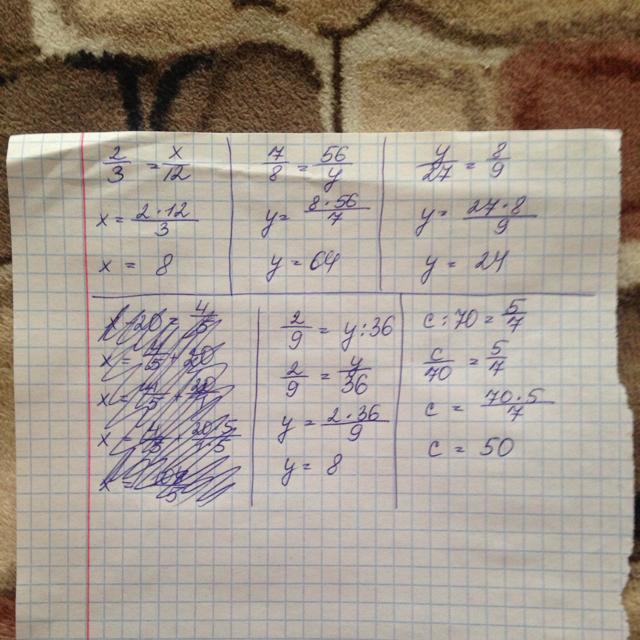 2/3 = x/12
x = 2·12/3
x = 8
7/8 = 56/y
y = 8·56/7
y = 64
y/27 = 8/9
y = 27·8/9
y = 24
2/9 = y:36
2/9 = y/36
y = 2·36/9
y = 8
c:70 = 5/7
c/70 = 5/7
c = 70·5/7
c = 50